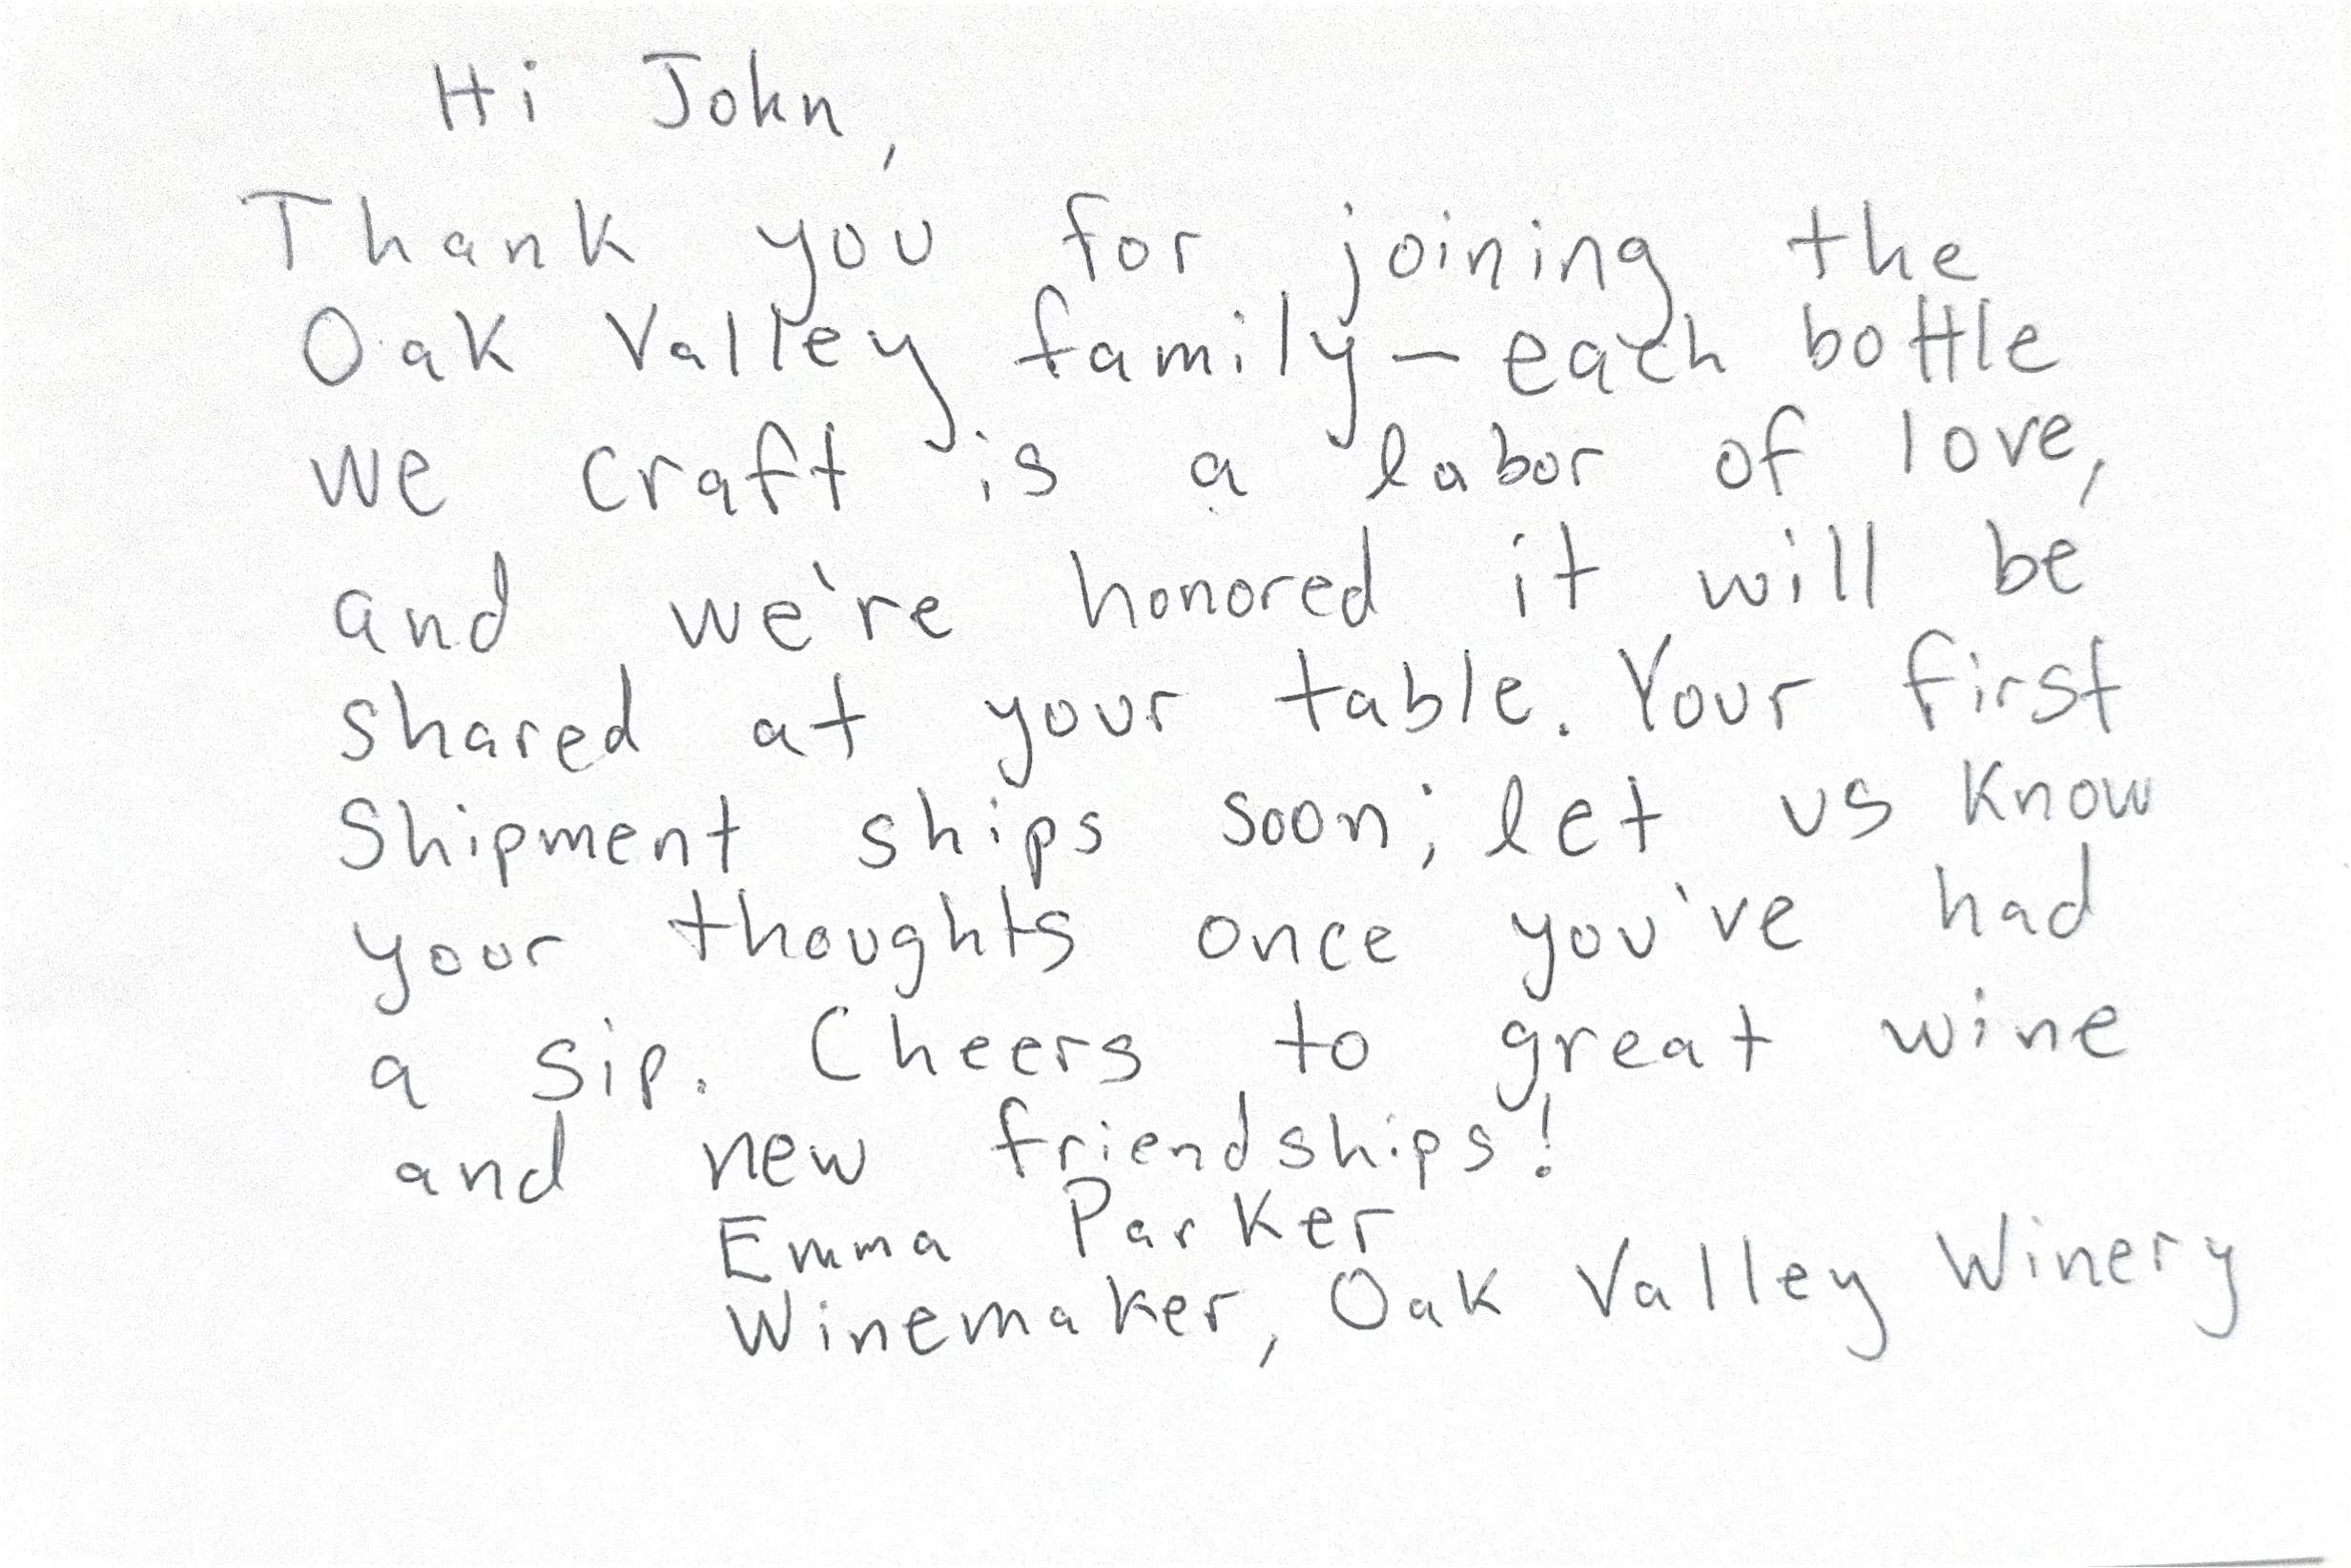 Hi John,
Thank you for joining the
Oak Valley family – each bottle
we craft is a labor of love,
and we're honored it will be
shared at your table. Your first
Shipment ships soon; let us know
your thoughts once you've had
a sip. Cheers to great wine
and new friendships!
Emma Parker
Winemaker, Oak Valley Winery